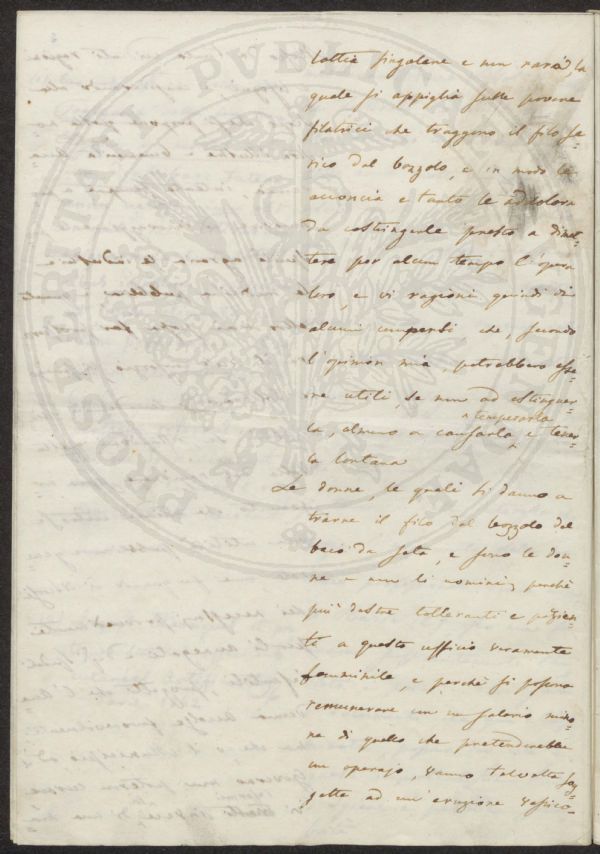 lattia singolare e non rara, la
quale si appiglia sulle povere
filatrici che traggono il filo se-
rico dal bozzolo, e in modo le
acconcia e tanto le addolora
da costringerle presto a dimet-
tere per alcun tempo l'opera
loro, e vi ragioni quindi di
alcuni compensi che, secondo
l'opinion mia, potrebbero esse-
re utili, se non ad estinguer-
la, almeno a causarla, e tener-
a temperarla
la lontana
Le donne, le quali si danno a
trarre il filo dal bozzolo del
baco da seta, e sono le don-
ne e non li uomini, perchè
più destre tolleranti e pazien-
ti a questo ufficio veramente
femminile, e perchè si possono
remunerare con un salario mino-
re di quello che pretenderebbe
un operajo, vanno talvolta sog-
gette ad un'eruzione vescico-
PROSPERITATI PVBLIC